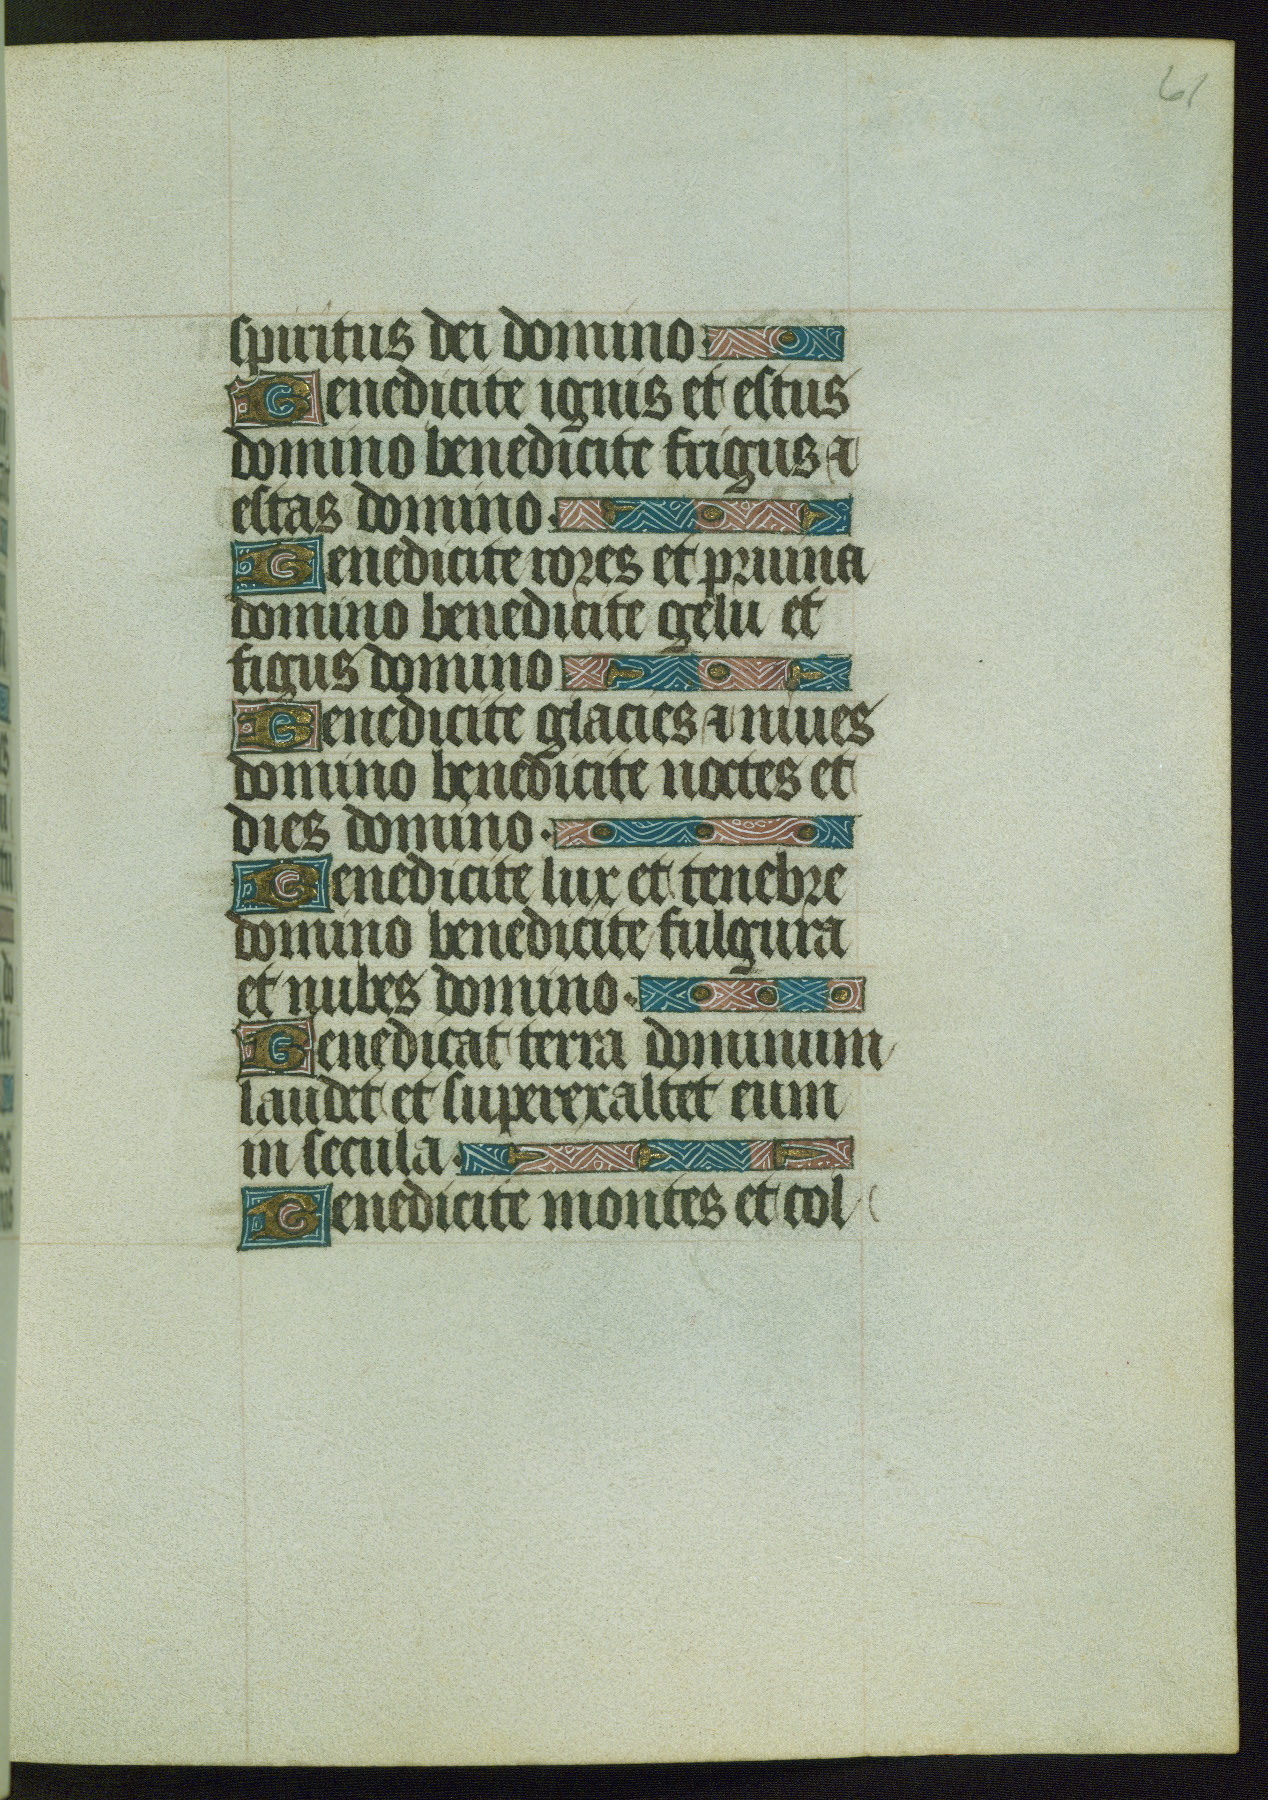 61
spiritus dei domino.
Benedicite ignis et estus
domino benedicite frigus &
estas domino.
Benedicite rores et pruina
domino benedicite gelu et
figus domino
Benedicite glacies & niues
domino benedicite noctes et
dies domino.
Benedicite lux et tenebre
domino benedicite fulgura
et nubes domino.
Benedicat terra dominum
laudet et superexaltet eum
in secula.
Benedicite montes et col